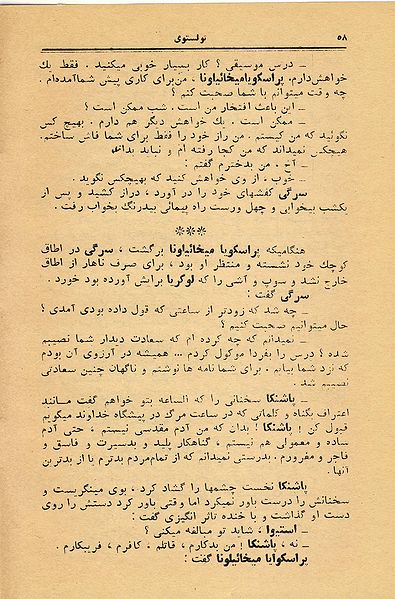 ۵۸ تولستوی
ـ درس موسیقی ؟ کار بسیار خوبی میکنید . فقط یك
خواهش‌دارم. پراسکویامیخائیلونا ، من‌برای کاری پیش شماآمده‌ام .
چه وقت میتوانم با شما صحبت کنم ؟
ـ این باعث افتخار من است . شب ممکن است ؟
ـ ممکن است . یك خواهش دیگر هم دارم . بهیچ کس
نگوئید که من کیستم . من راز خود را فقط برای شما فاش ساختم.
هیچکس نمیداند که من کجا رفته ام و نباید بداند
ـ آخ ، من بدخترم گفتم :
ـ خوب ، از وی خواهش کنید که بهیچکس نگوید .
سرگی کفشهای خود را در آورد ، دراز کشید و پس از
یکشب بیخوابی و چهل ورست راه پیمائی بیدرنگ بخواب رفت .
***
هنگامیکه پراسکویا میخائیلونا برگشت ، سرگی در اطاق
کوچك خود نشسته و منتظر او بود ، برای صرف ناهار از اطاق
خارج نشد و سوپ و آشی را که لوکریا برایش آورده بود خورد .
سرگی گفت :
ـ چه شد که زودتر از ساعتی که قول داده بودی آمدی ؟
حال میتوانیم صحبت کنیم ؟
ـ نمیدانم که چه کرده ام که سعادت دیدار شما نصیبم
شده ؟ درس را بفردا موکول کردم ... همیشه در آرزوی آن بودم
که نزد شما بیایم . برای شما نامه ها نوشتم و ناگهان چنین سعادتی
نصیبم شد .
ـ پاشنکا سخنانی را که الساعه بتو خواهم گفت مانند
اعتراف بگناه و کلماتی که در ساعت مرگ در پیشگاه خداوند میگویم
قبول کن ! پاشنکا ! بدان که من آدم مقدسی نیستم ، حتی آدم
ساده و معمولی هم نیستم ، گناهکار پلید و بدسیرت و فاسق و
فاجر و مغرورم . بدرستی نمیدانم که از تمام‌مردم بدترم یا از بدترین
آنها .
پاشنکا نخست چشمها را گشاد کرد ، بوی مینگریست و
سخنانش را درست باور نمیکرد اما وقتی باور کرد دستش را روی
دست او گذاشت و با خنده تاثر انگیزی گفت :
ـ استیوا ، شاید تو مبالغه میکنی ؟
ـ نه ، پاشنکا ! من بدکارم ، قاتلم ، کافرم ، فریبکارم .
پراسکوایا میخائیلونا گفت :